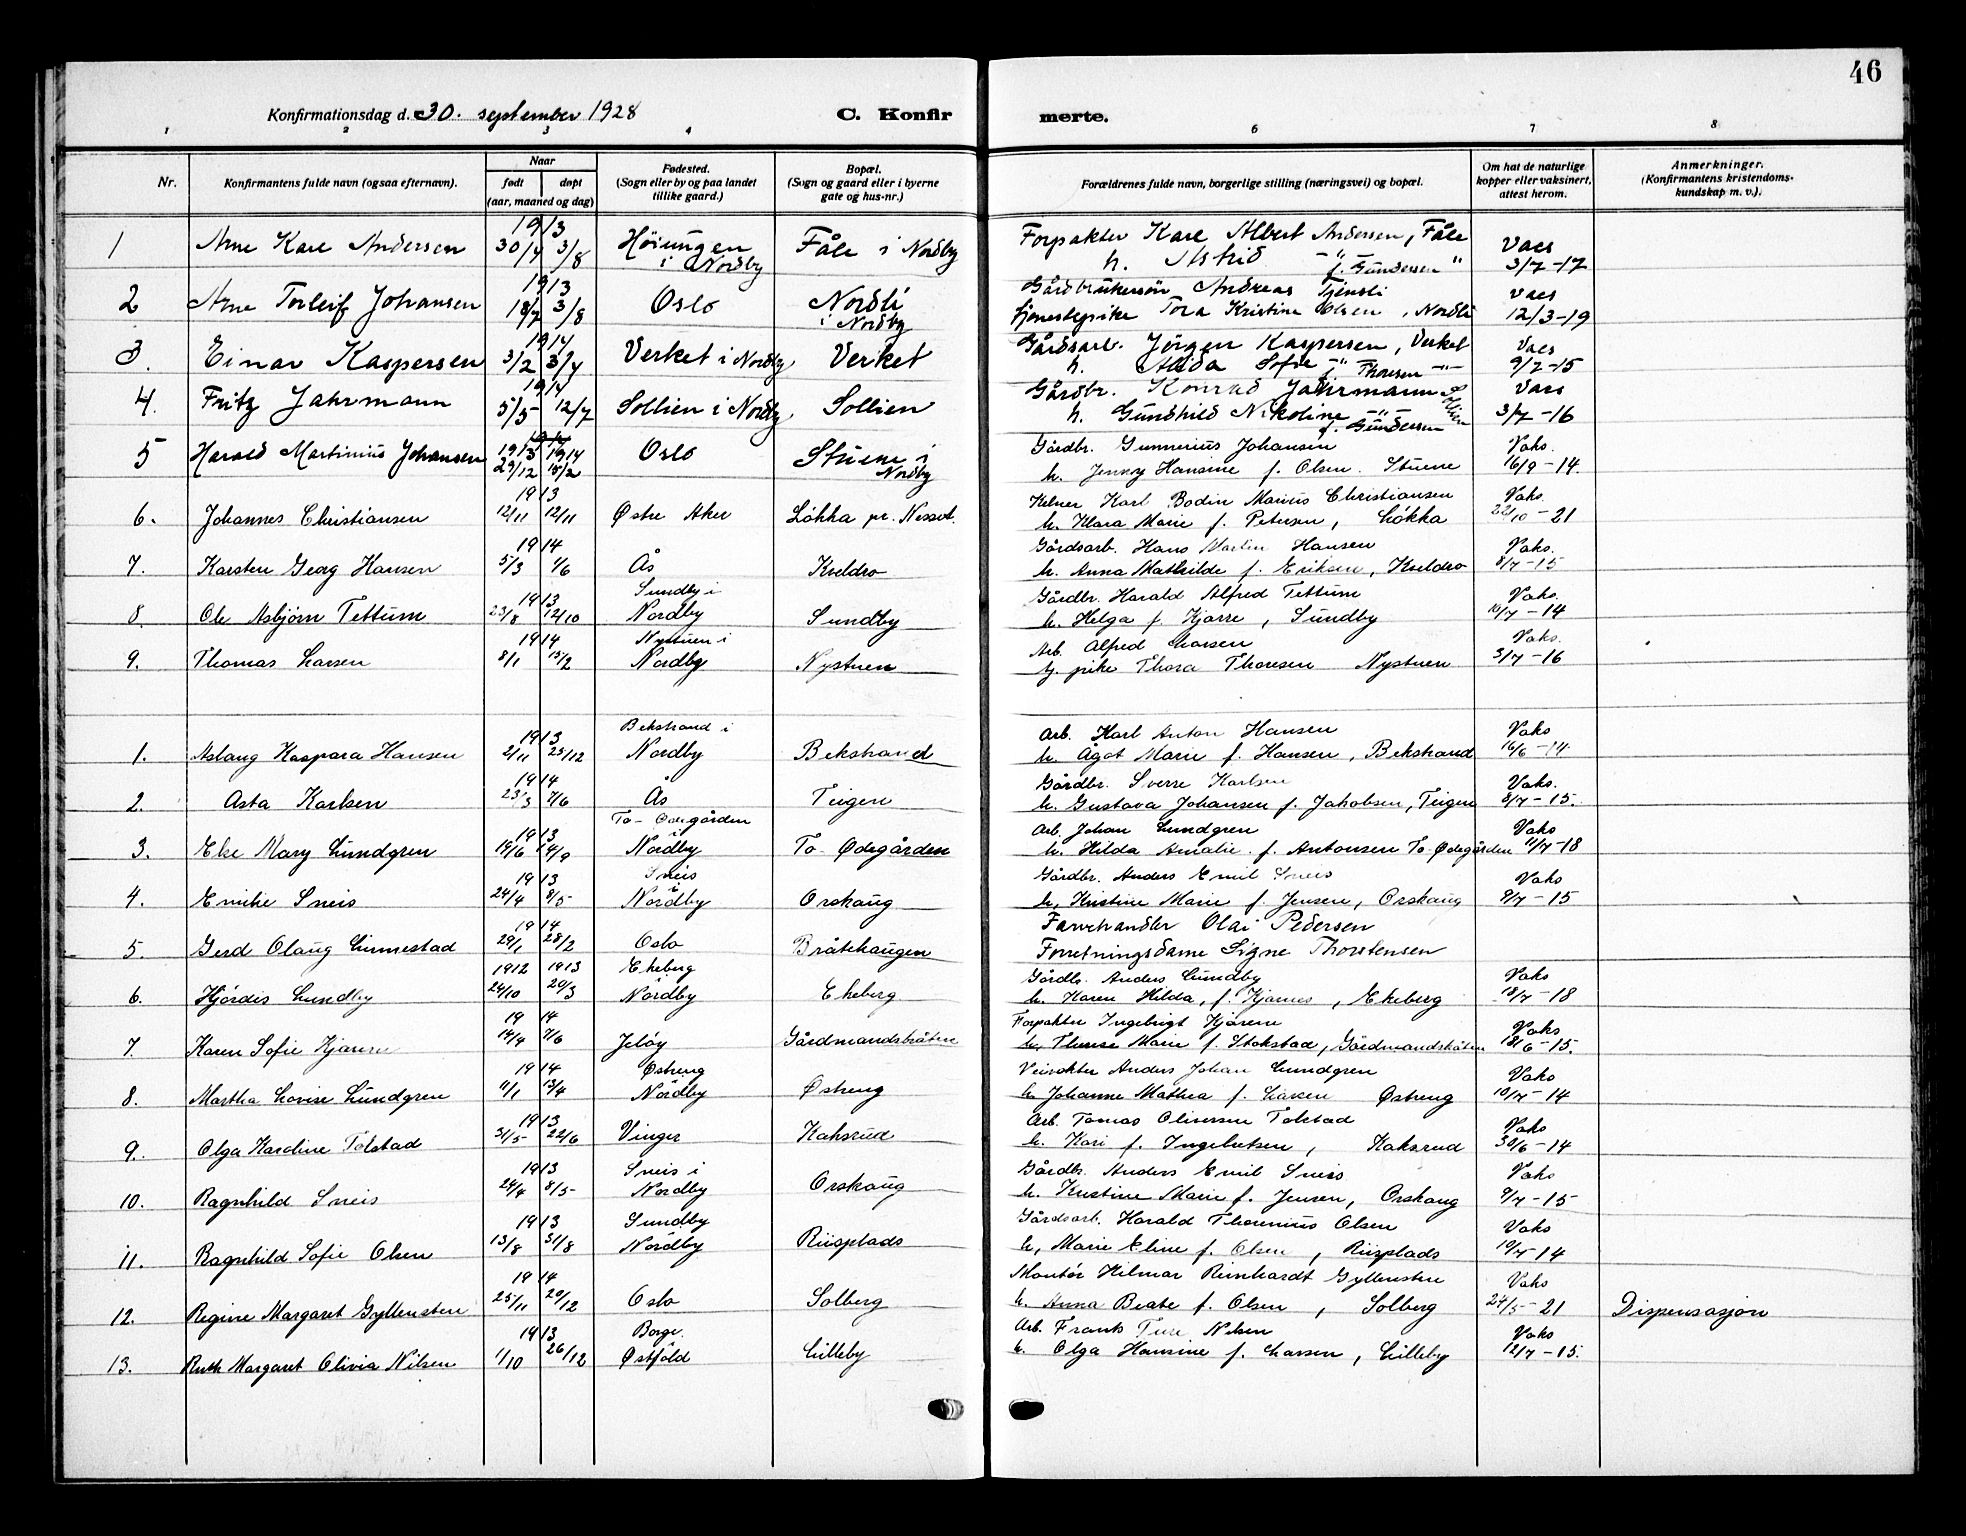 46
Konfirmationsdag d. 30. september 1928
C. Konfirmerte.
1 2 3 4 6 7 8
Nr.
Konfirmantens fulde navn (ogsaa efternavn).
Naar
født
døpt
(aar, maaned og dag)
Fødested.
(Sogn eller by og paa landet
tillike gaard.)
Bopæl.
(Sogn og gaard eller i byerne
gate og hus-nr.)
Forældrenes fulde navn, borgerlige stilling (næringsvei) og bopæl.
Om hat de naturlige
kopper eller vaksinert,
attest herom.
Anmerkninger.
(Konfirmantens kristendoms-
kundskap m. v.).
1 Arne Kare Andersen 1913 30/4 3/8 Höiungen i Nordby Fåle i Nordby Forpakter Kare Albert Andersen, Fåle Vacs
h. Astrid -"- f. Gundersen " 3/7-17
2 Arne Torleif Johansen 1913 18/7 3/8 Oslo Nordli i Nordby Gårdbrukersön Andreas Vacs
tjenestepike Tora Kristine Olsen, Nordli 12/3-19
3. Einar Kaspersen 1914 3/2 3/4 Verket i Nordby Verket Gårdsarb. Jörgen Kaspersen, Verket Vacs
h. Alida Sofie -"- f. Thoresen -"- 9/7-15
4. Fritz Jahrmann 1914 5/5 12/7 Sollien i Nordby Sollien Gårdbr. Konrad Jahrmann Sollien Vacs
h. Gundhild Nikoline -"- f. Gundersen 3/7-16
5 Harald Martinius Johansen 1913 1914 29/12 15/2 Oslo Stuene i Nordby Gårdbr. Gunnerius Johansen Vaks.
h. Jenny Hansine f. Olsen. Stuene 16/9-14.
6. Johannes Christiansen 1913 12/11 12/11 Østre Aker Løkka pr. Nessot. Kelner Karl Bodin Marius Christiansen Vaks.
h. Klara Marie f. Petersen, Løkka 22/10-21
7. Karsten Georg Hansen 1914 5/3 1/6 Ås Kneldro Gårdsarb. Hans Martin Hansen Vaks.
h. Anna Mathilde f. Eriksen, Kneldro 8/7-15
8. Ole Asbjørn Tettum 1913 23/8 12/10 Sundby i Nordby Sundby Gårdbr. Harald Alfred Tettum Vaks.
h. Helga f. , Sundby 10/7-14
9. Thomas Larsen 1914 8/1 15/2 Nystuen i Nordby Nystuen Arb. Alfred Larsen Vaks.
tj. pike Thora Thoresen Nystuen 3/7-16
1. Aslaug Kaspara Hansen 1913 2/11 25/12 Bekstrand i Nordby Bekstrand Arb. Karl Anton Hansen Vaks
h. Ågot Marie f. Hansen, Bekstrand 16/6-14
2. Asta Karlsen 1914 23/3 7/6 Ås Teigen Gårdbr. Sverre Karlsen Vaks.
h. Gustava Johansen f. Jakobsen, Teigen 8/7-15.
3. Else Mary Lundgren 1913 19/6 14/9 To-Ødegården i Nordby To-Ødegården Arb. Johan Lundgren Vaks
h. Hilda Amalie f. Antonsen To-Ødegården 11/7-18
4. Emilie Sneis 1913 24/4 8/5 Sneis i Nordby Orskaug Gårdbr. Anders Emil Sneis Vaks
h. Kristine Marie f. Jensen, Orskaug 9/7-15
5. Gerd Olaug Linnestad 1914 29/1 28/2 Oslo Bråtehaugen Farvehandler Olai Pedersen
Forretningsdame Signe Thorstensen
6. Hjördis Lundby 1912 1913 24/10 20/3 Ekeberg Nordby Ekeberg Gårdbr. Anders Lundby Vaks
h. Karen Hilda, f. , Ekeberg 18/7-18
7. Karen Sofie Kjærem 1914 14/4 7/6 Jeløy Gårdmandsbråten Forpakter Ingebrigt Kjærem Vaks
h. Therese Marie f. Stokstad, Gårdmandsbråten 18/6-15.
8. Martha Lovise Lundgren 1914 11/1 13/4 Østreng Nordby Østreng Veivokter Anders Johan Lundgren Vaks
h. Johanne Mathea f. Larsen Østreng 10/7-14
9. Olga Karoline Tolstad 1913 31/5 22/6 Vinger Kaksrud Arb. Tomas Oliversen Tolstad Vaks
h. Kari f. Ingebretsen, Kaksrud 30/6-14
10. Ragnhild Sneis 1913 24/4 8/5 Sneis i Nordby Orskaug Gårdbr. Anders Emil Sneis Vaks
h. Kristine Marie f. Jensen, Orskaug 9/7-15
11. Ragnhild Sofie Olsen 1913 13/8 31/8 Sundby Nordby Riisplads Gårdsarb. Harald Thorenius Olsen Vaks
h. Marie Eline f. Olsen, Riisplads 10/7-14
12. Regine Margaret Gyllensten 1914 25/11 20/12 Oslo Solberg Montør Hilmar Reinhardt Gyllensten Vaks
h. Anna Beate f. Olsen, Solberg 24/5-21 Dispensasjon
13. Ruth Margaret Olivia Nilsen 1913 1/10 26/12 Borge. Østfold Lilleby Arb. Frants Ture Nilsen Vaks
h. Olga Hansine f. Larsen, Lilleby 12/7-15.